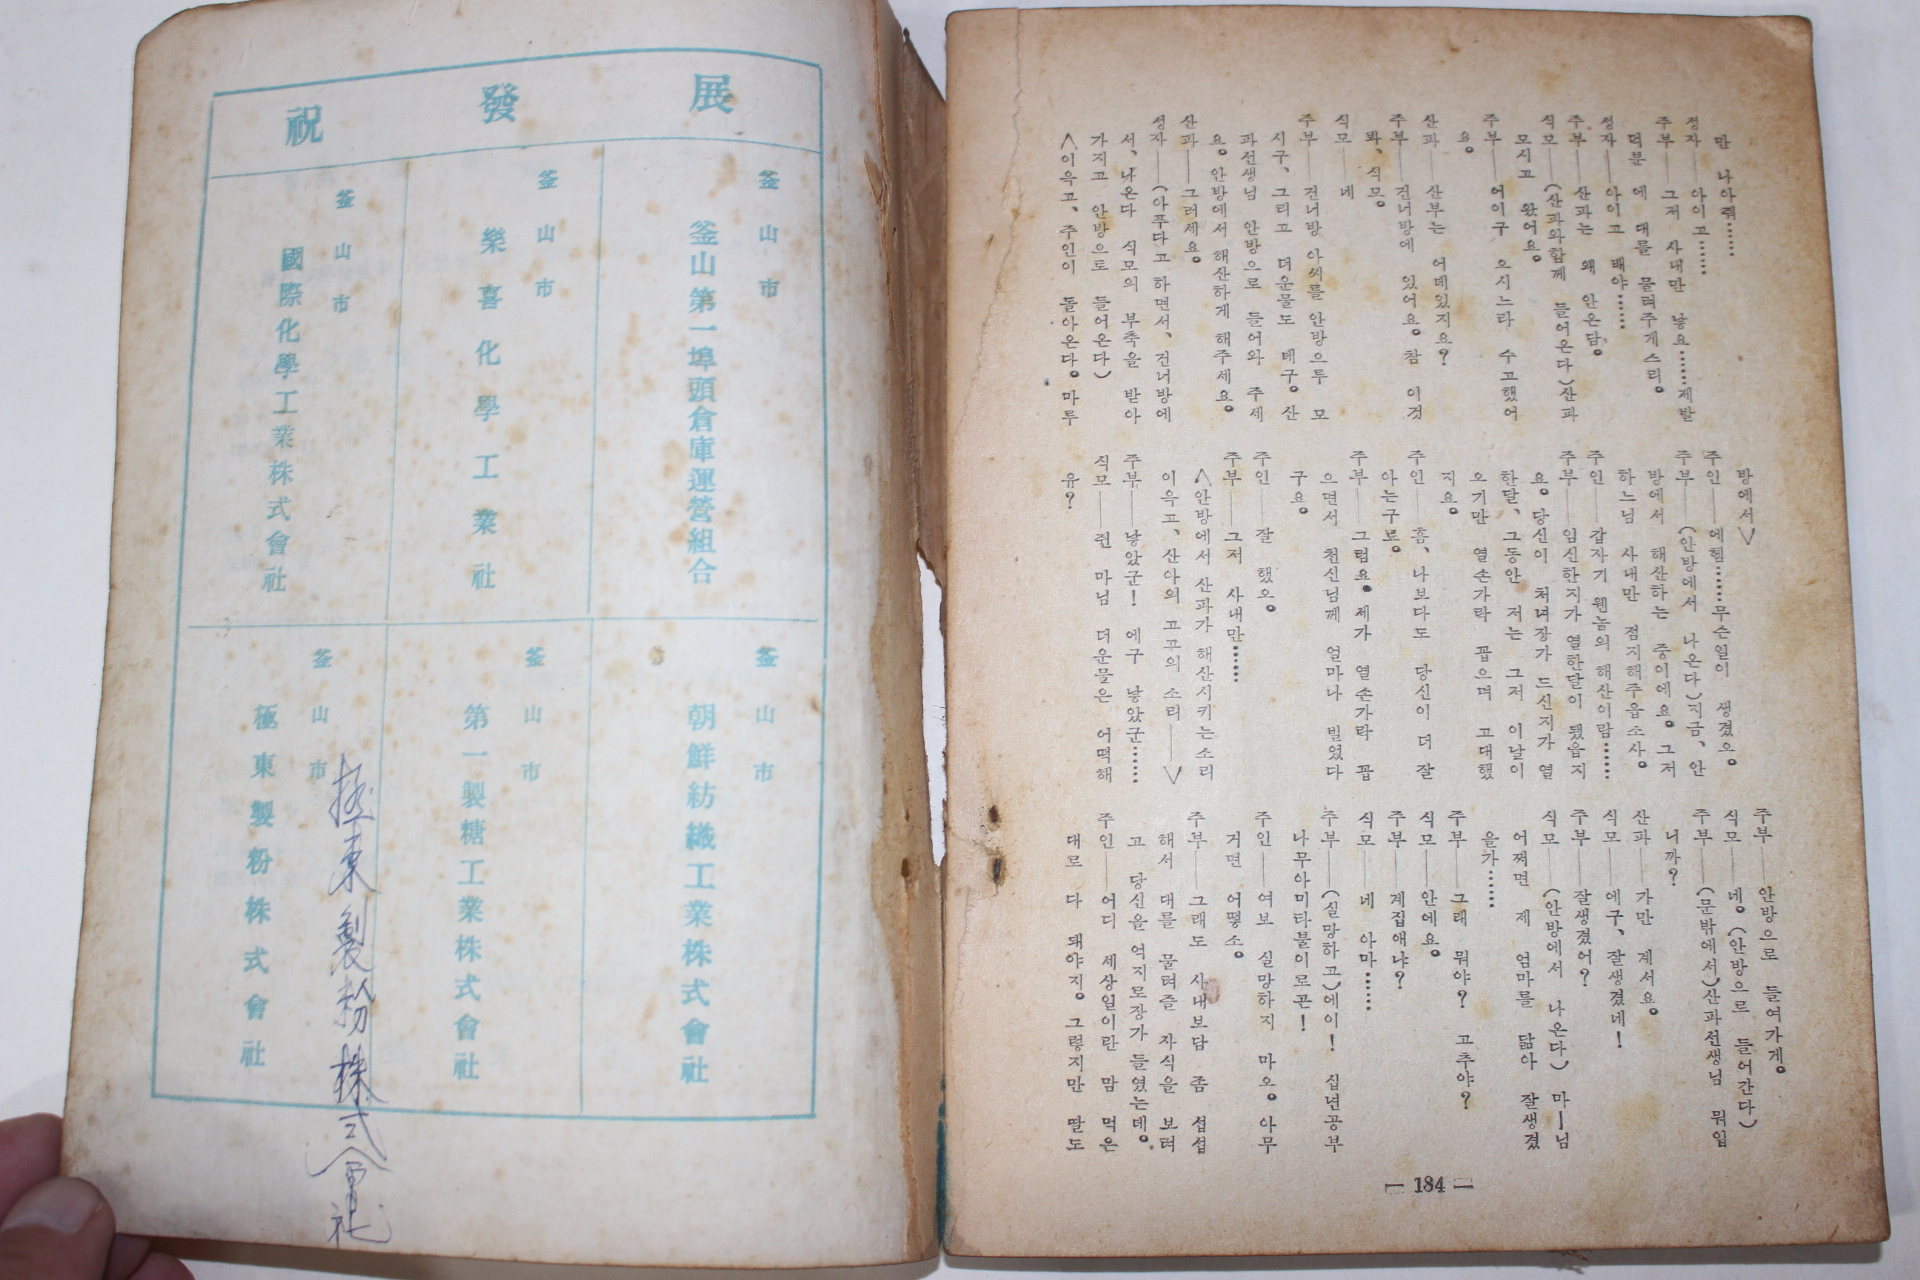 만 나아줘……
정자──아이고……
주부──그저 사내만 낳요……제발
덕분에 대를 물려주게스리。
정자──아이고 배야……
주부──산파는 왜 안온담。
식모──(산파와함께 들어온다)산파
모시고 왔어요。
주부──어이구 오시느라 수고했어
요。
산파──산부는 어데있지요?
주부──건너방에 있어요。참 이것
봐、식모。
식모──네
주부──건너방 아씨를 안방으루 모
시구、그리고 더운물도 데구。산
파선생님 안방으로 들어와 주세
요。안방에서 해산하게 해주세요。
산파──그러세요。
정자──(아푸다고 하면서、건너방에
서、나온다 식모의 부축을 받아
가지고 안방으로 들어온다)
<이윽고、주인이 돌아온다。마루
방에서>
주인──에헴……무슨일이 생겼오。
주부──(안방에서 나온다)지금、안
방에서 해산하는 중이에요。그저
하느님 사내만 점지해주옵소사。
주인──갑자기 웬놈의 해산이람……
주부──임신한지가 열한달이 됐읍지
요。당신이 처녀장가 드신지가 열
한달、그동안 저는 그저 이날이
오기만 열손가락 꼽으며 고대했
지요。
주인──흠、나보다도 당신이 더 잘
아는구로。
주부──그럼요。제가 열손가락 꼽
으면서 천신님께 얼마나 빌었다
구요。
주인──잘 했오。
주부──그저 사내만……
<안방에서 산파가 해산시키는소리
이윽고、산아의 고꼬의 소리──>
주부──낳았군! 에구 낳았군……
식모──쥔 마님 더운물은 어떡해
유?
주부──안방으로 들여가게。
식모──네。(안방으로 들어간다)
주부──(문밖에서)산파선생님 뭐입
니까?
산파──가만 계서요。
식모──에구、잘생겼네!
주부──잘생겼어?
식모──(안방에서 나온다) 마ー님
어쩌면 제 엄마를 닮아 잘생겼
을가……
주부──그래 뭐야? 고추야?
식모──안에요。
주부──계집애냐?
식모──네 아마……
주부──(실망하고)에이! 십년공부
나무아미타불이로곤!
주인──여보 실망하지 마오。아무
거면 어떻소。
주부──그래도 사내보담 좀 섭섭
해서 대를 물려줄 자식을 보려
고 당신을 억지로장가 들였는데。
주인──어디 세상일이란 맘 먹은
대로 다 돼야지。그렇지만 딸도
— 184 —
祝 發 展
釜山市
釜山第一埠頭倉庫運營組合
釜山市
樂喜化學工業社
釜山市
國際化學工業株式會社
釜山市
朝鮮紡織工業株式會社
釜山市
第一製糖工業株式會社
釜山市
極東製粉株式會社
極東製粉株式會社